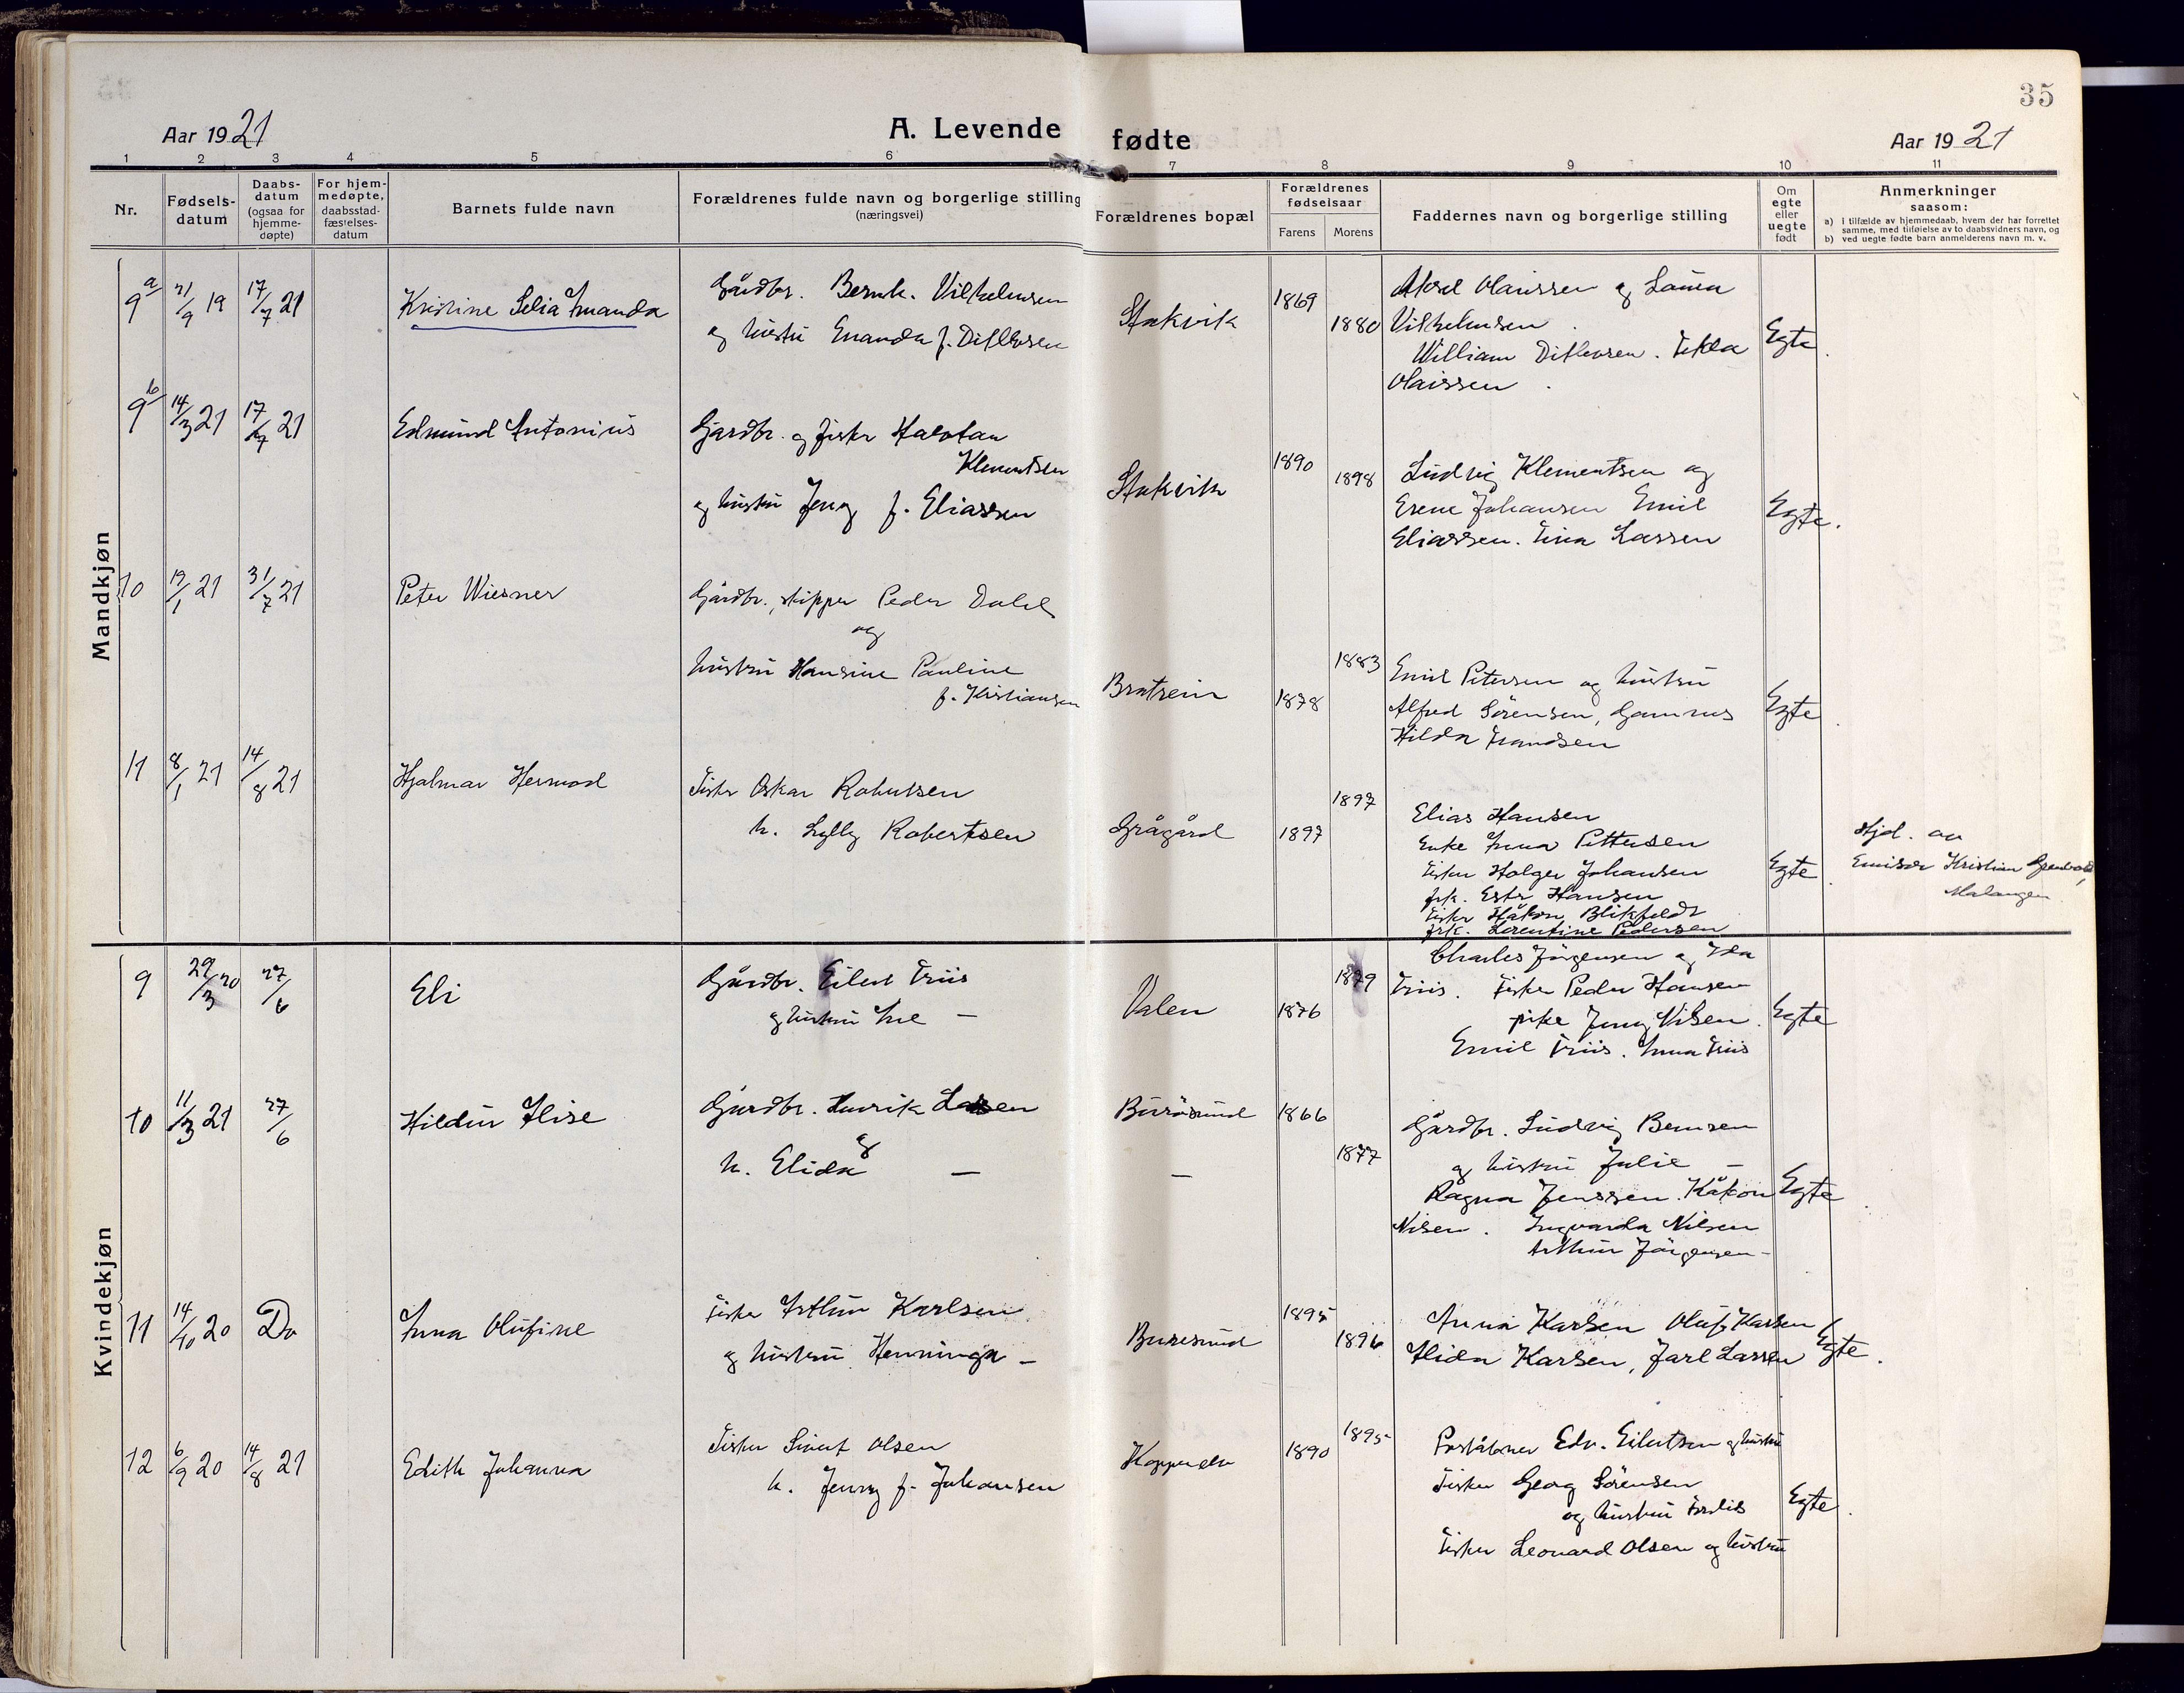 35
Aar 1921
A. Levende fødte
Aar 1921
1 2 3 4 5 6 7 8 9 10 11
Nr.
Fødsels-
datum
Daabs-
datum
(ogsaa for
hjemme-
døpte)
For hjem-
medøpte,
daabsstad-
fæstelses-
datum
Barnets fulde navn
Forældrenes fulde navn og borgerlige stilling
(næringsvei)
Forældrenes bopæl
Forældrenes
fødselsaar
Farens
Morens
Faddernes navn og borgerlige stilling
Om
egte
eller
uegte
født
Anmerkninger
saasom:
a) i tilfælde av hjemmedaab, hvem der har forrettet
samme, med tilføielse av to daabsvidners navn, og
b) ved uegte fødte barn anmelderens navn m. v.
Mandkjøn
9a
21/9 19
17/7 21
Kristine Selia Amanda
Gårdbr. Bernh. Vilhelmsen
og hustru Emanda f. Ditlevsen
Stakvik
1869
1880
Aksel Olaussen og Laura
Vilhelmsen
William Ditlevsen. Tekla
Olaissen
Egte
9b
14/3 21
17/7 21
Edmund Antonius
Gardbr. og fisker Halvtan
Klementsen
og hustru Jeny f. Eliassen
Stakvik
1890
1898
Ludvig Klementsen og
Erene Johansen Emil
Eliassen. Tina Larsen
Egte.
10
19/1 21
31/7 21
Peter Wiesner
Gårdbr., skipper Peder Dahl
og
hustru Hansine Pauline
f. Kristiansen
Bratrein
1878
1883
Emil Petersen og hustru
Alfred Sörensen,
Hilda Frandsen
Egte
11
8/1 21
14/8 21
Hjalmar Hermod
Fisker Oskar Robertsen
h. Lylly Robertsen
Grågård
1897
1897
Elias Hansen
Enke Anna Pettersen
Fisker Holger Johansen
frk. Ester Hansen
Fisker Håkon Blikfeldt
frk. Lorentine Pedersen
Egte
Hjd. av
Emisær Kristian
Malangen
Kvindekjøn
9
29/3 20
27/6
Eli
Gårdbr. Eilert Friis
og hustru Ane –
Valen
1876
1879
Charles Jörgensen og Ida
Friis. Fisker Peder Hansen
pike Jenny Nilsen.
Emil Friis. Anna Friis
Egte
10
11/3 21
27/6
Hildur Elise
Gårdbr. Henrik Larsen
og
h. Elida –
Burösund
–
1866
1877
Gårdbr. Ludvig Berntsen
og hustru Julie –
Ragna Jenssen. Håkon
Nilsen. Ingvarda Nilsen
Arthur Jörgensen –
Egte
11
14/10 20
Do
Anna Olufine
Fisker Arthur Karlsen
og hustru Henninga –
Buresund
1895
1896
Anna Karlsen Oluf Karlsen
Alida Karlsen, Jarl Larsen
Egte.
12
6/9 20
14/8 21
Edith Johanna
Fisker Sivert Olsen
h. Jenny f. Johansen
1890
1895
Poståbner Edv. Eilertsen og hustru
Fisker Georg Sörensen
og hustru
Fisker Leonard Olsen og hustru
Egte.